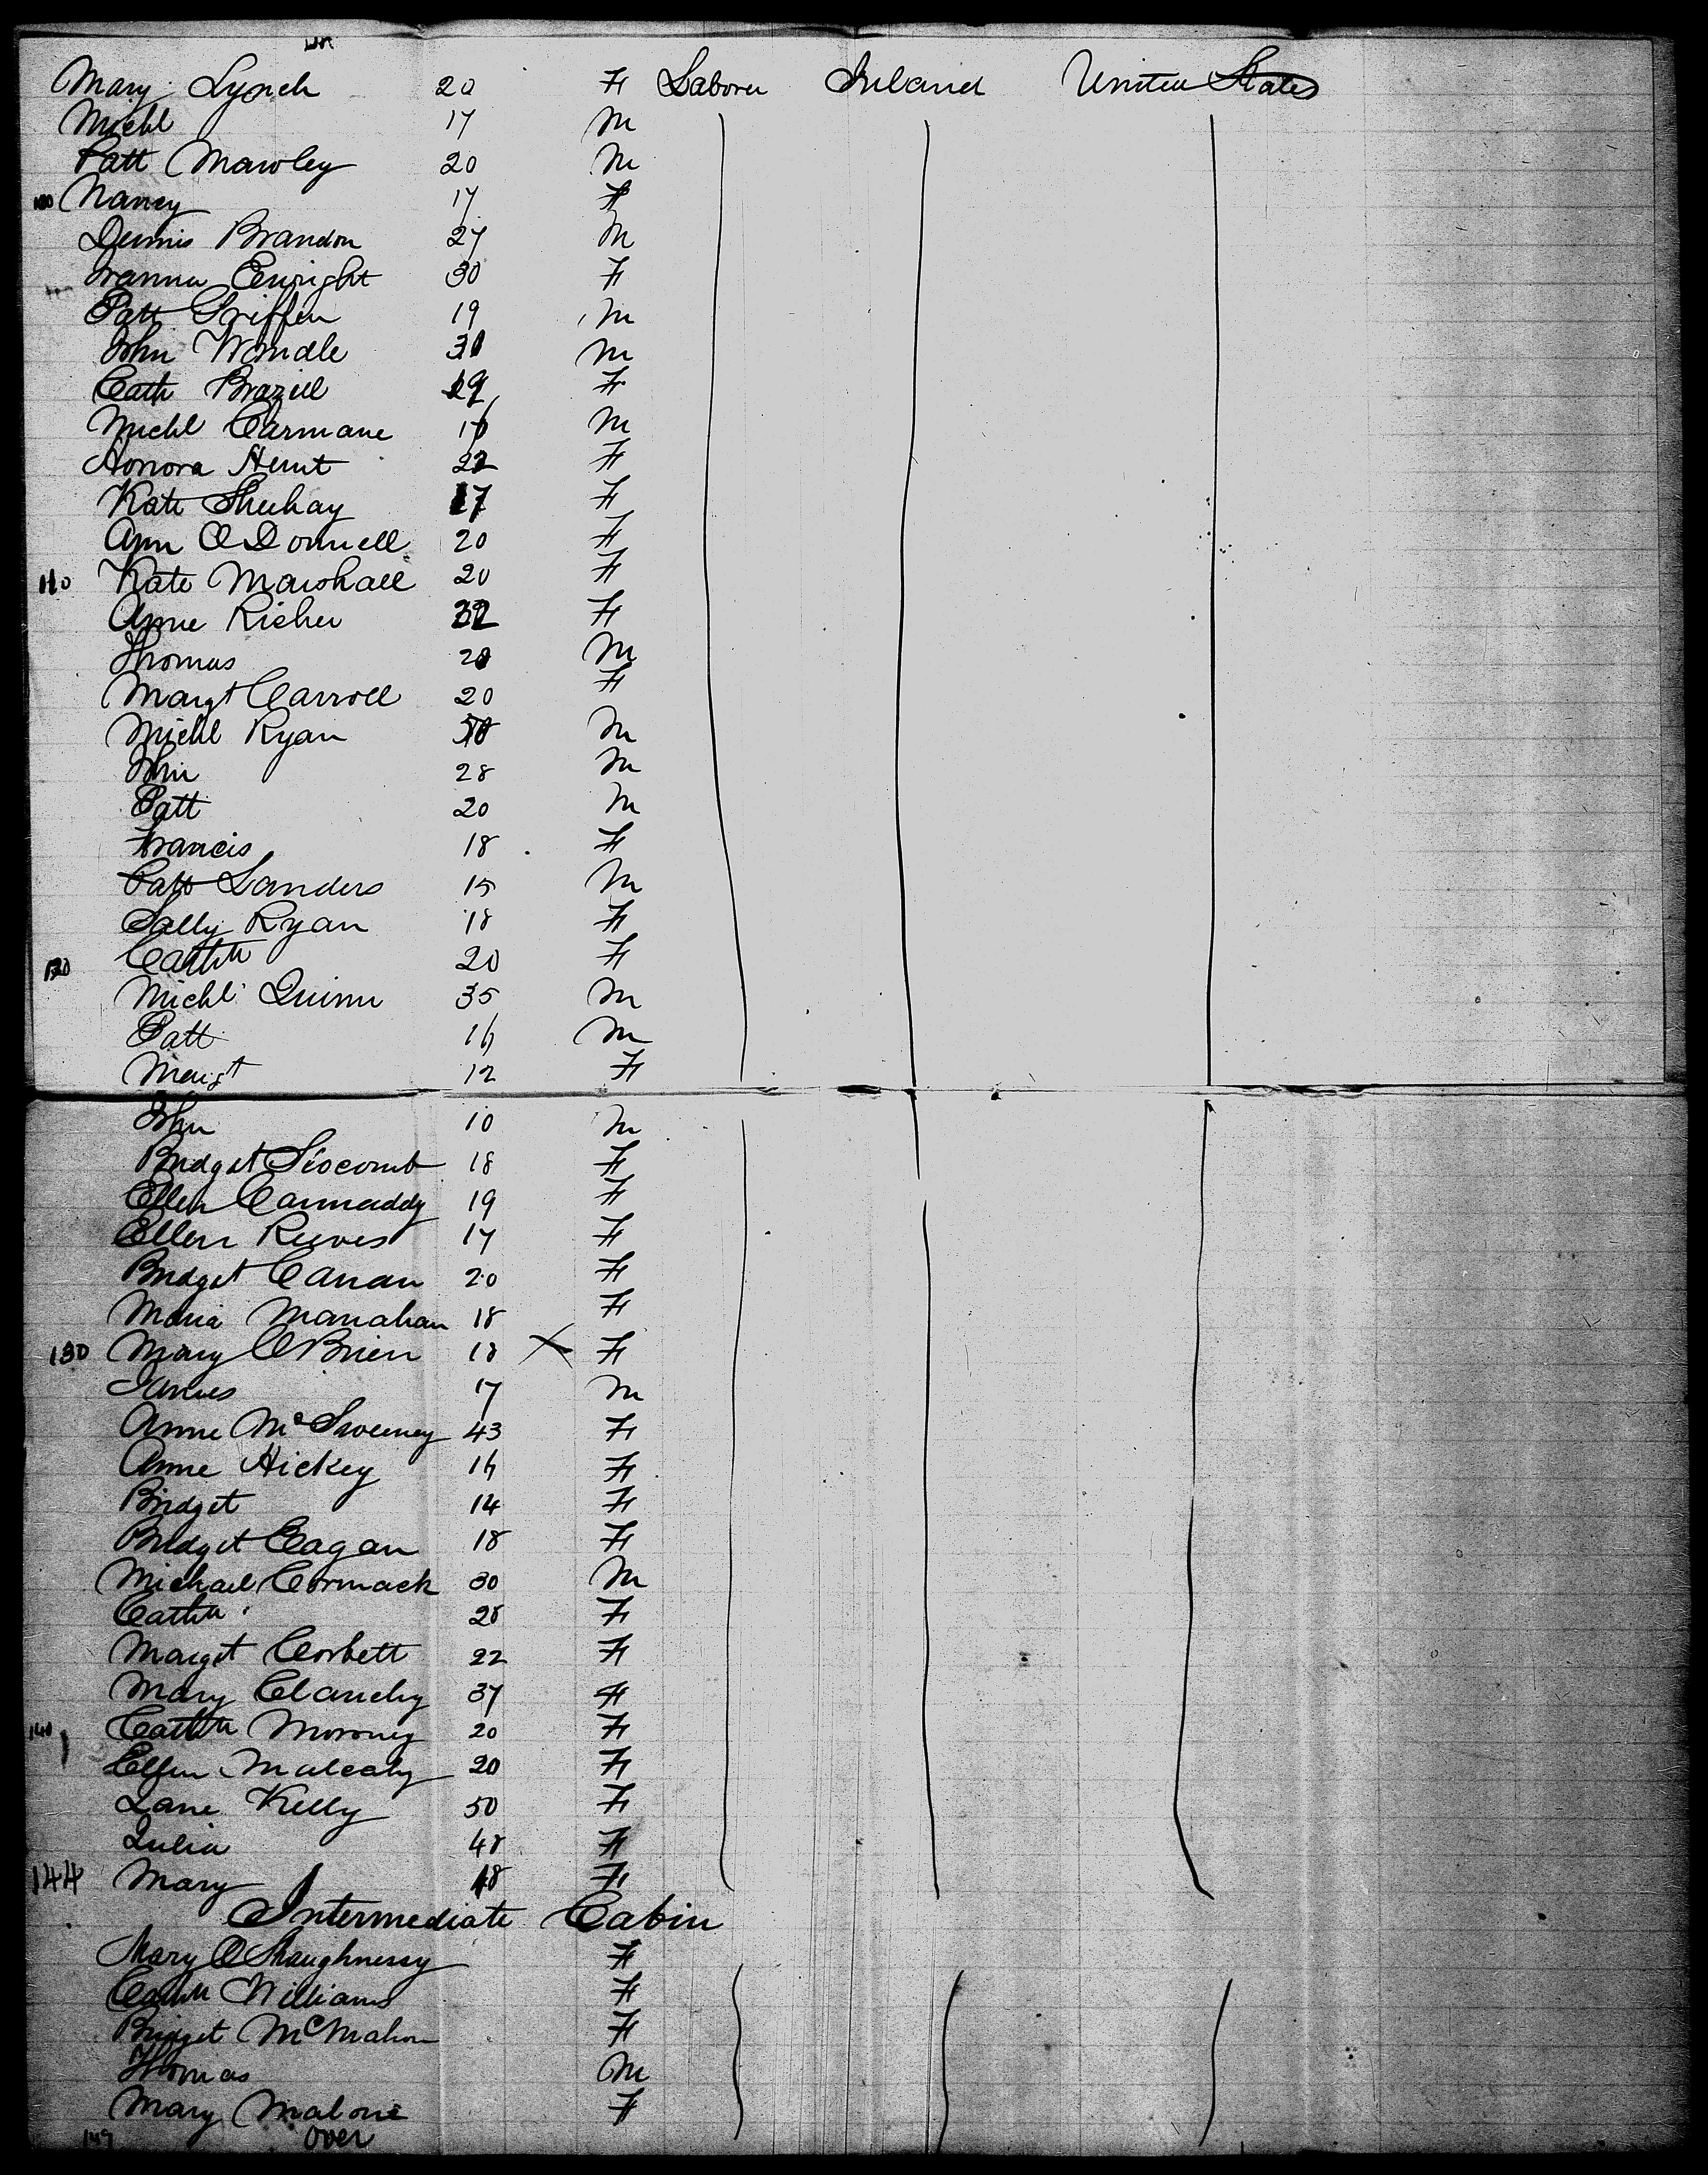 Mary Lynch 20 F Laborer Ireland United States
Michl 17 M
Patt Mawley 20 M
100 Nancy 17 F
Dennis Brandon 27 M
Enright 30 F
Patt Griffen 19 M
John Windle 30 M
Cath Brazill 19 F
Michl Carmane 17 M
Honora Hunt 22 F
Kate Sheehay 17 F
Ann O Donnell 20 F
110 Kate Marshall 20 F
Anne Richer 32 F
Thomas 28 M
Margt Carroll 20 F
Michl Ryan M
John 28 M
Patt 20 M
Francis 18 F
Patt Sanders 15 M
Sally Ryan 18 F
120 Cathn 20 F
Michl Quinn 35 M
Patt 16 M
Margt 12 F
John 10 M
Bridget Siocomb 18 F
Ellen Carmaddy 19 F
Ellen Reeves 17 F
Bridget Canan 20 F
Maria Manahan 18 F
130 Mary O Brien 18 X F
James 17 M
Anne Mc Sweeney 43 F
Anne Hickey 16 F
Bridget 14 F
Bridget Eagan 18 F
Michael Cormack 30 M
Cathn 28 F
Margt Corbett 22 F
Mary Clanchy 37 F
140 Cathn Moroney 20 F
Ellen Mulcahy 20 F
Jane Kelly 50 F
Julia 48 F
144 Mary 18 F
Intermediate Cabin
Mary O Shaughnessy F
Cathn Williams F
Bridget McMahon F
Thomas M
Mary Malone F
149 over